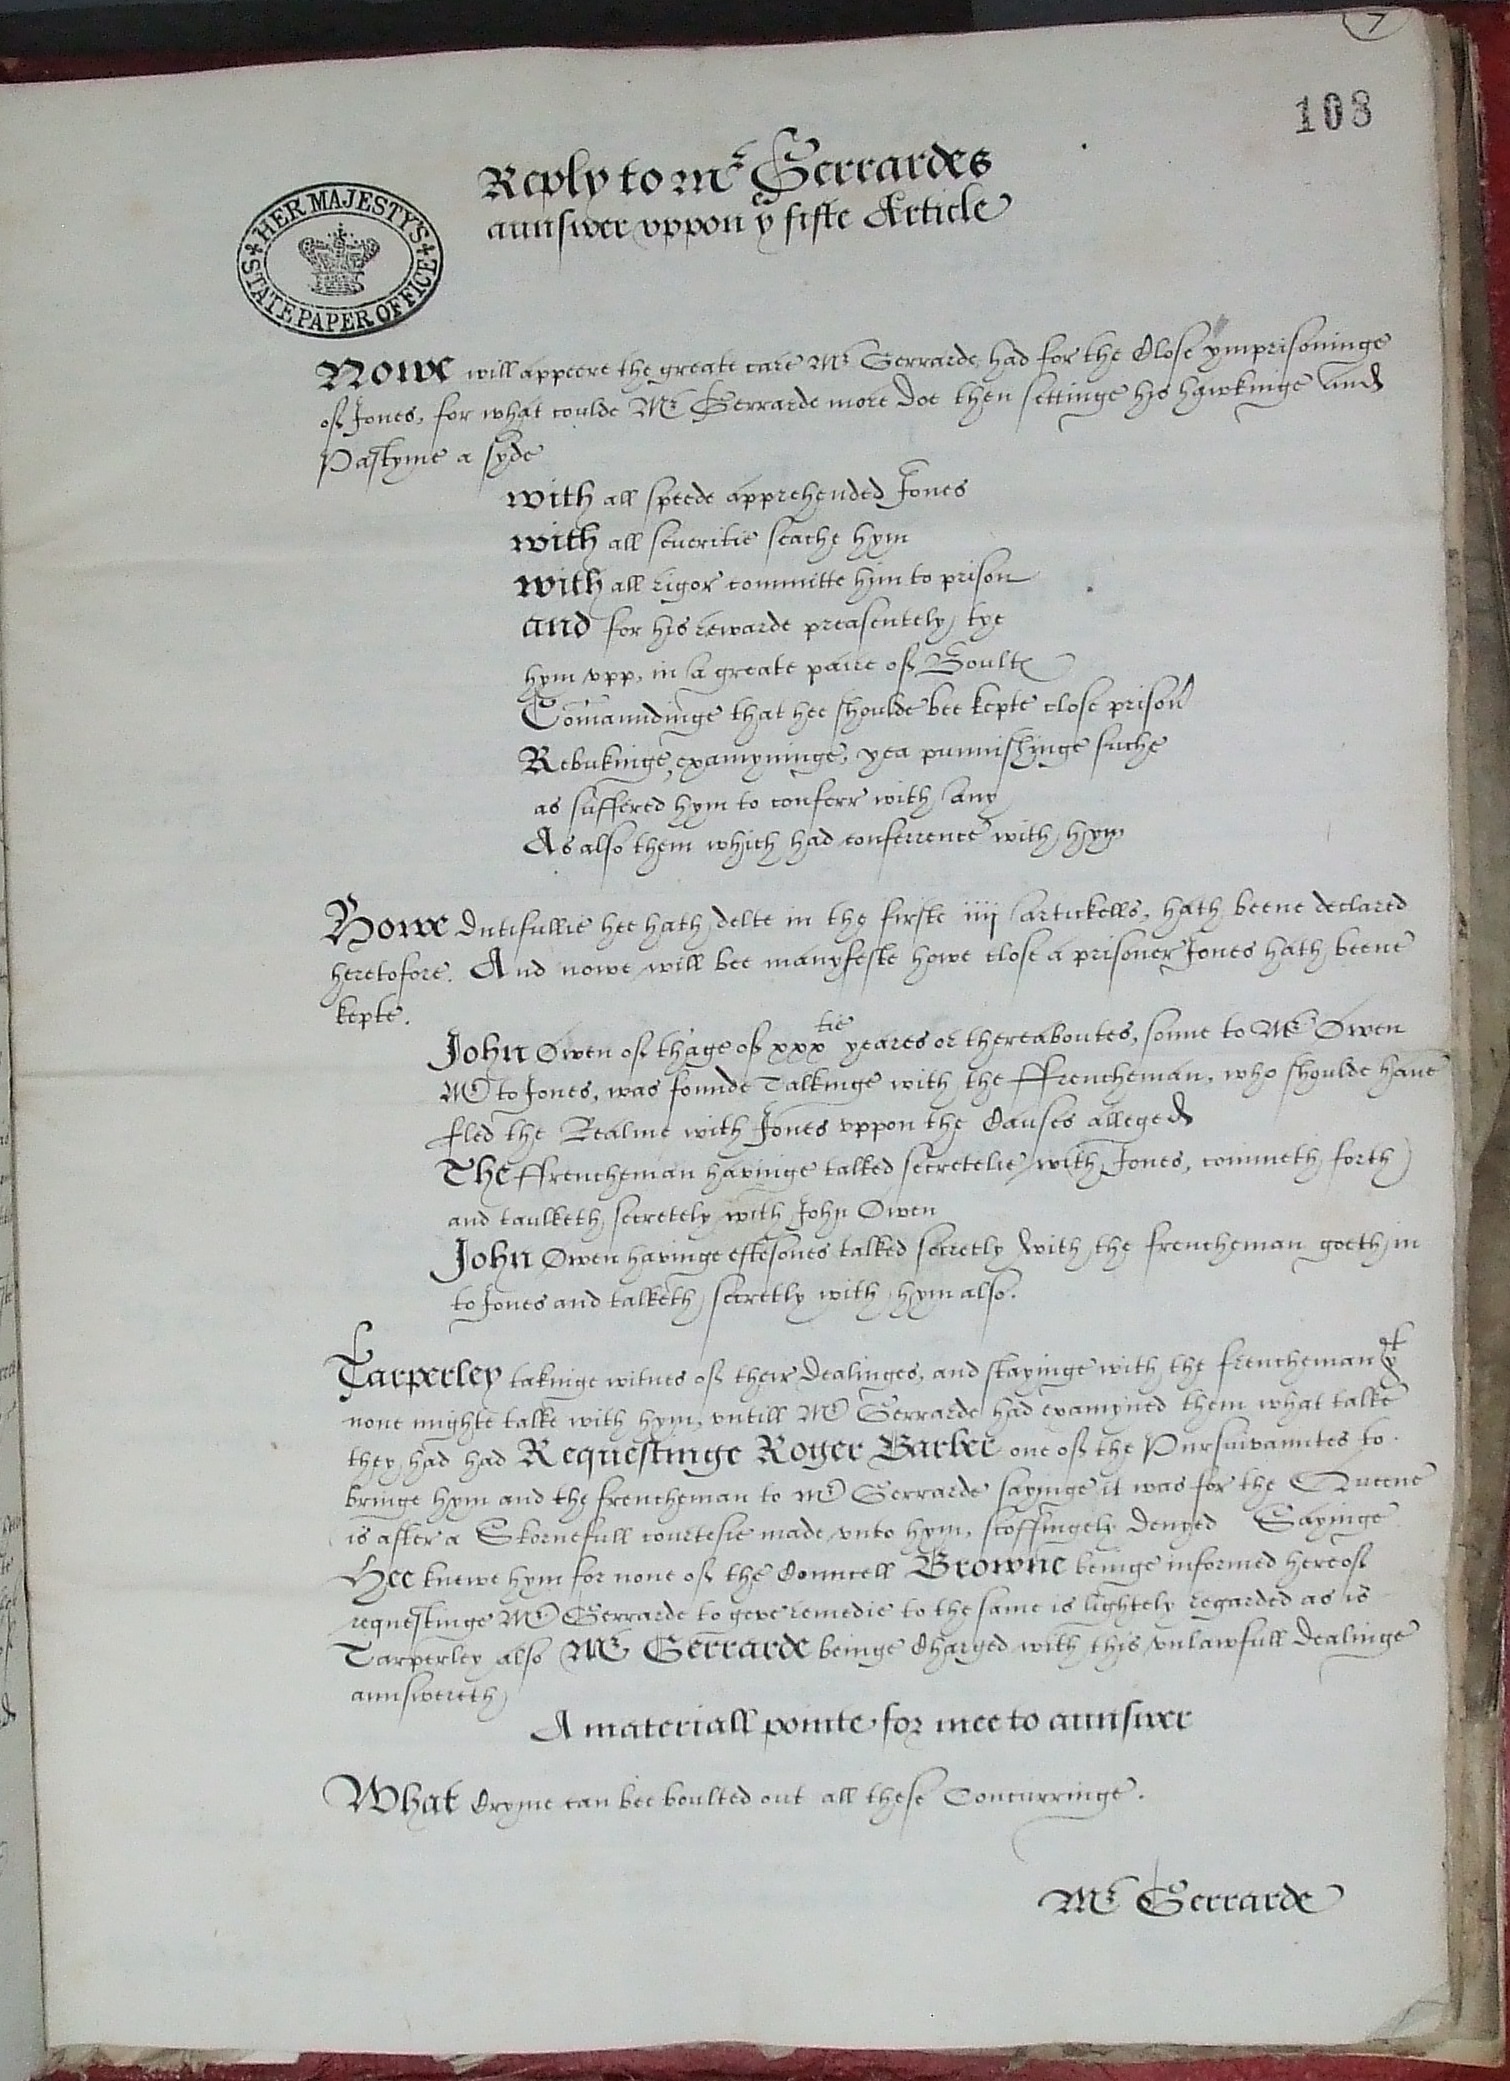 7
108
HER MAJESTY'S STATE PAPER OFFICE
Reply to Mr Gerrardes
aunswer vppon ye fifte Article
Nowe will appeere the greate care Mr Gerrarde had for the Close ymprisoninge
of Jones, for what coulde Mr Gerrarde more doe then settinge his hawkinge and
Pastyme a syde
with all speede apprehended Jones
with all seueritie seache hym
with all rigor committe him to prison
and for his rewarde preasentely tye
hym vpp, in a greate paire of Boultes
Comaundinge that hee shoulde bee kepte close prison
Rebukinge, examyninge, yea punnishinge suche
as suffered hym to conferr with any
As also them which had conferrence with hym
Howe dutifullie hee hath delte in the firste iiij artickells, hath beene declared
heretofore. And nowe will bee manyfeste howe close a prisoner Jones hath beene
kepte.
John Owen of thage of xxxtie yeares or thereaboutes, sonne to Mr Owen
Mr to Jones, was founde Talkinge with the ffrencheman, who shoulde haue
fled the Realme with Jones vppon the Causes alleged
The ffrencheman havinge talked secretelie with Jones, commeth forth
and taulketh secretely with John Owen
John Owen havinge eftesones talked secretly with the frencheman goeth in
to Jones and talketh secretly with hym also.
Tarperley takinge witnes of their dealinges, and stayinge with the frencheman yt
none mighte talke with hym, vntill Mr Gerrarde had examyned them what talke
they had had Requestinge Roger Barber one of the Pursuivauntes to
bringe hym and the frencheman to Mr Gerrarde sayinge it was for the Queene
is after a Skornefull courtesie made vnto hym, scoffingely denyed Sayinge
Hee knewe hym for none of the Councell Browne beinge informed hereof
requestinge Mr Gerrarde to geve remedie to the same is lightely regarded as is
Tarperley also Mr Gerrarde beinge Charged with this vnlawfull dealinge
aunswereth
A materiall pointe for mee to aunswer
What Cryme can bee boulted out all these Concurringe.
Mr Gerrarde